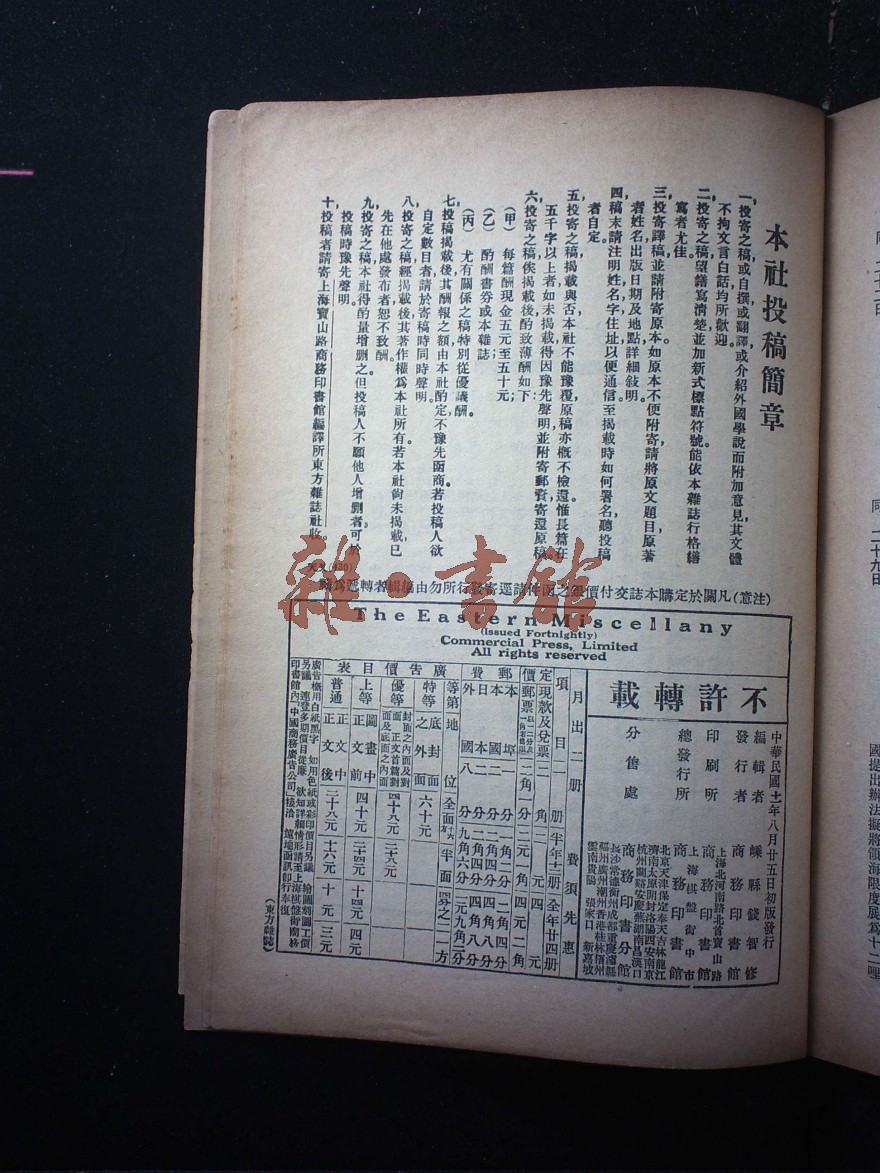 本社投稿簡章
一，投寄之稿或自撰或翻譯或介紹外國學說而附加意見其文體
不拘文言白話均所歡迎。
二，投寄之稿望繕寫清楚並加新式標點符號能依本雜誌行格繕
寫者尤佳。
三，投寄譯稿並請附寄原本如原本不便附寄請將原文題目原著
者姓名出版日期及地點詳細敍明。
四，稿末請注明姓名字住址以便通信至揭載時如何署名聽投稿
者自定。
五，投寄之稿揭載與否本社不能豫覆原稿亦概不檢還惟長篇在
五千字以上者如未揭載得因豫先聲明並附寄郵費寄還原稿。
六，投寄之稿俟揭載後酌致薄酬如下：
（甲） 每篇酬現金五元至五十元；
（乙） 酌酬書券或本雜誌
（丙） 尤有關係之稿特別從優議酬。
七，投稿揭載後其酬報之額由本社酌定不豫先函商。若投稿人欲
自定數目者請於寄稿時同時聲明。
八，投寄之稿經揭載後其著作權爲本社所有。若本社尙未揭載已
先在他處發布者恕不致酬。
九，投寄之稿本社得酌量增刪之但投稿人不願他人增刪者可於
投稿時豫先聲明。
十，投稿者請寄上海寶山路商務印書館編譯所東方雜誌社收。
(注意)凡關於定購本誌交付價銀之函件請逕寄發行所勿由編輯者轉遞爲
雜·書館
The Eastern Miscellany
(Issued Fortnightly)
Commercial Press, Limited
All rights reserved
不許轉載
中華民國十一年八月廿五日初版發行
編輯者 嵊縣錢智修
發行者 商務印書館
印刷所 上海北河南路北首寶山路
商務印書館
總發行所 上海棋盤街中市
商務印書館
分售處 北京天津保定奉天吉林龍江
濟南太原開封洛陽西安南京
杭州蘭谿安慶蕪湖南昌漢口
商務印書分館
長沙常德衡州成都重慶瀘縣
福州廣州潮州香港桂林梧州
雲南貴陽 張家口 新嘉坡
月出二册 費須先惠
項目 一册 半年十二册 全年廿四册
定價 現款及兌票 二角 二元 四元
郵票 二角一分 二元一角 四元二角
郵費 本埠 一分 一角二分 二角四分
本國 二分 二角四分 四角八分
日本 二分 二角四分 四角八分
外國 八分 九角六分 一元九角二分
廣告價目表
等第 地位 全面 半面 四分之一
特等 底封面之外面 六十元
優等 封面之內面及對面 正文首篇對面及底面之內面 四十八元 二十八元
上等 圖畫中 正文前 四十元 二十四元 十四元
普通 正文中 正文後 二十八元 十六元 十元
廣告概用白紙黑字 如用色紙或彩印價目另議 繪圖刻圖工價
另議 連登多期價目從廉 欲知詳細情形請至上海棋盤街商務
印書館內「中國商務廣告公司」接洽
（東方雜誌）